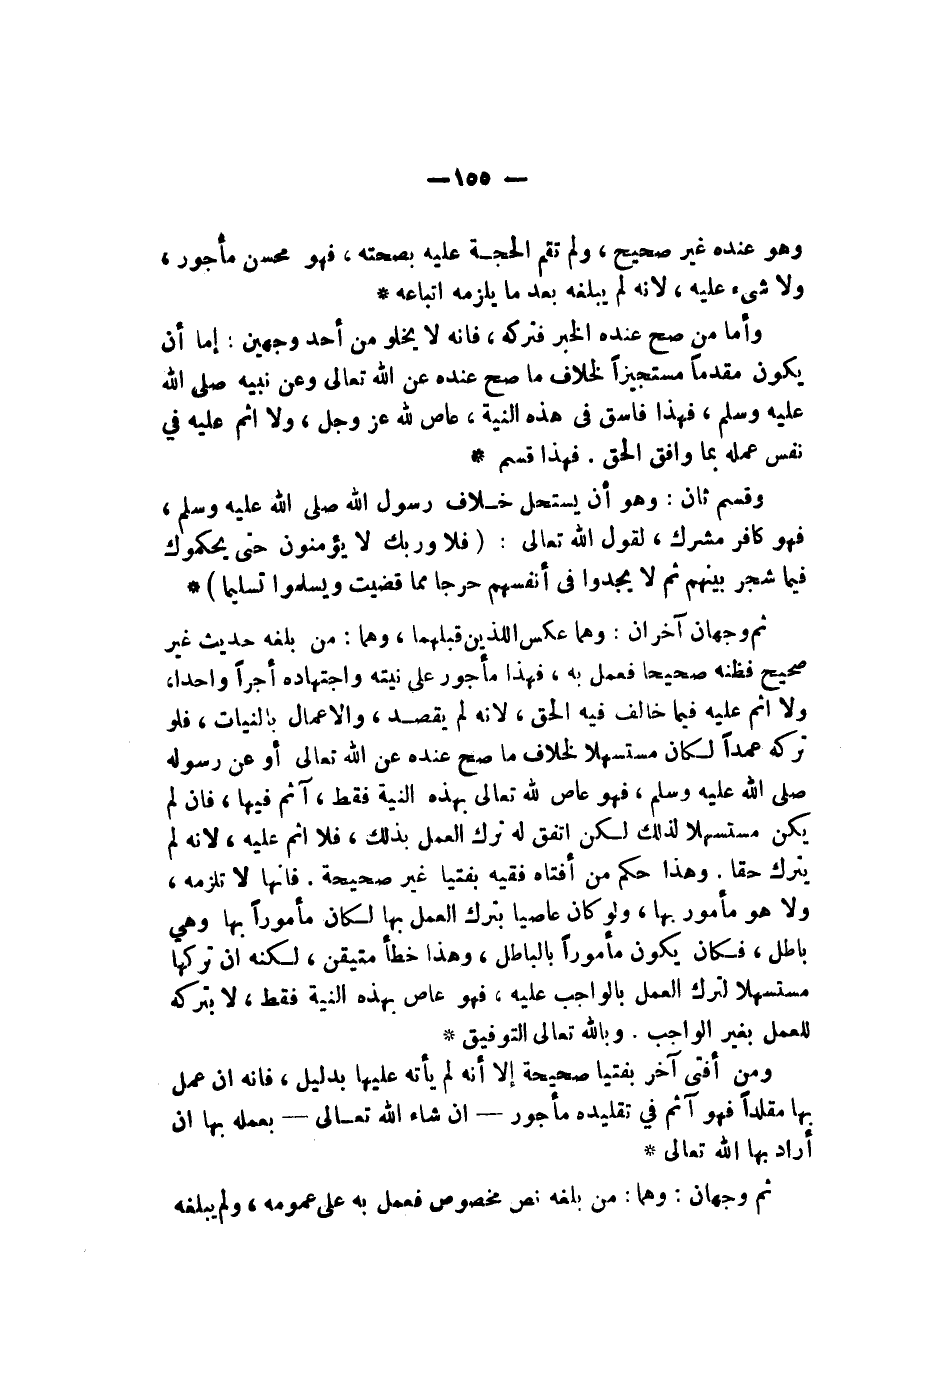 — ١٥٥ —
وهو عنده غير صحيح ، ولم تقم الحجة عليه بصحته ، فهو محسن مأجور ،
ولا شيء عليه ، لانه لم يبلغه بعد ما يلزمه اتباعه *
وأما من صح عنده الخبر فتركه ، فانه لا يخلو من أحد وجهين : إما أن
يكون مقدماً مستجيزاً لخلاف ما صح عنده عن الله تعالى وعن نبيه صلى الله
عليه وسلم ، فهذا فاسق فى هذه النية ، عاص لله عز وجل ، ولا اثم عليه في
نفس عمله بما وافق الحق . فهذا قسم *
وقسم ثان : وهو أن يستحل خلاف رسول الله صلى الله عليه وسلم ،
فهو كافر مشرك ، لقول الله تعالى : ( فلا وربك لا يؤمنون حتى يحكموك
فيما شجر بينهم ثم لا يجدوا فى أنفسهم حرجا مما قضيت ويسلموا تسليما ) *
ثم وجهان آخران : وهما عكس اللذين قبلهما ، وهما : من بلغه حديث غير
صحيح فظنه صحيحا فعمل به ، فهذا مأجور على نيته واجتهاده أجراً واحدا،
ولا اثم عليه فيما خالف فيه الحق ، لانه لم يقصد ، والاعمال بالنيات ، فلو
تركه عمداً لكان مستسهلا لخلاف ما صح عنده عن الله تعالى أو عن رسوله
صلى الله عليه وسلم ، فهو عاص لله تعالى بهذه النية فقط ، آثم فيها ، فان لم
يكن مستسهلا لذلك لكن اتفق له ترك العمل بذلك ، فلا اثم عليه ، لانه لم
يترك حقا . وهذا حكم من أفتاه فقيه بفتيا غير صحيحة . فانها لا تلزمه ،
ولا هو مأمور بها ، ولو كان عاصيا بترك العمل بها لكان مأموراً بها وهي
باطل ، فكان يكون مأموراً بالباطل ، وهذا خطأ متيقن ، لكنه ان تركها
مستسهلا لترك العمل بالواجب عليه ، فهو عاص بهذه النية فقط ، لا بتركه
للعمل بغير الواجب . وبالله تعالى التوفيق *
ومن أفتى آخر بفتيا صحيحة إلا أنه لم يأته عليها بدليل ، فانه ان عمل
بها مقلداً فهو آثم في تقليده مأجور — ان شاء الله تعالى — بعمله بها ان
أراد بها الله تعالى *
ثم وجهان : وهما : من بلغه نص مخصوص فعمل به على عمومه ، ولم يبلغه